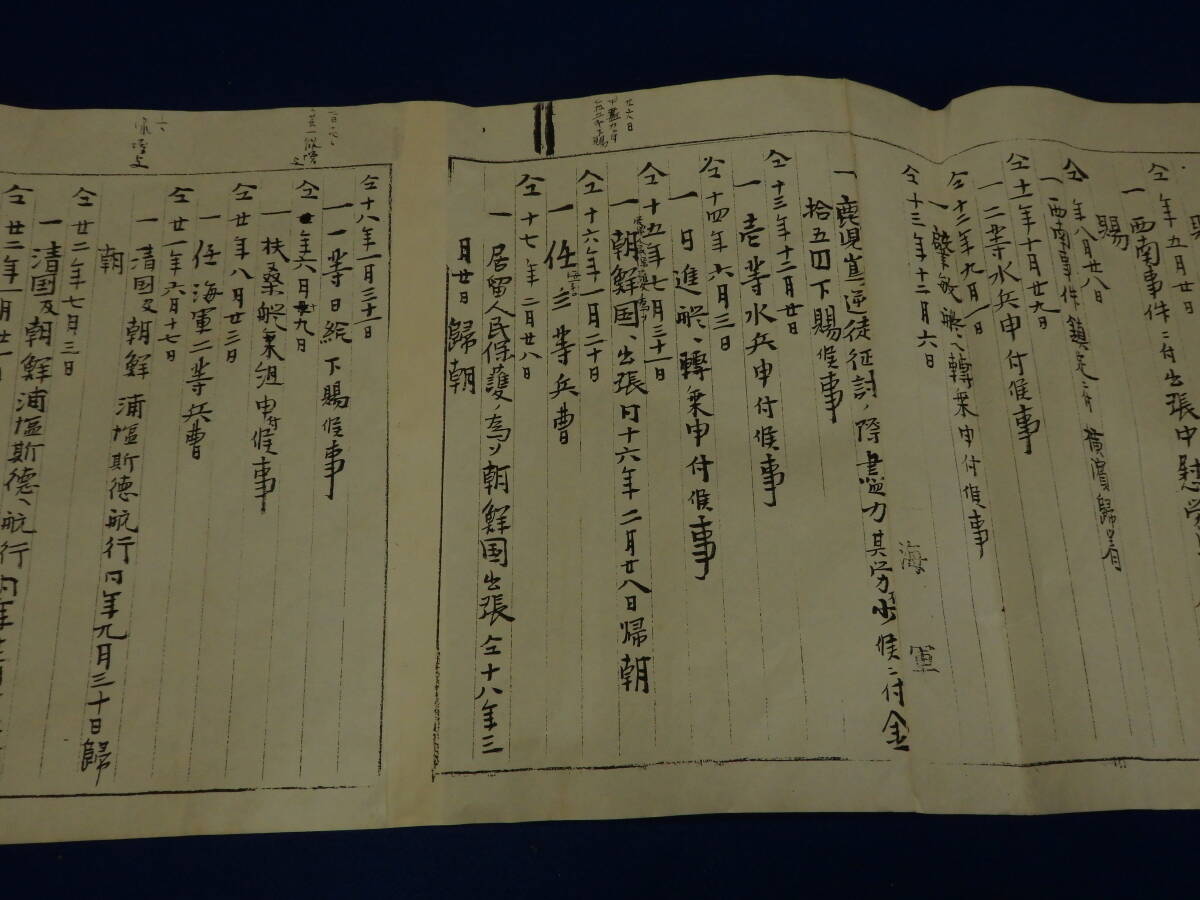 仝年五月廿日
一西南事件ニ付出張中慰労
賜
仝年八月廿八日
一西南事件鎮定ニ付横濱歸着
仝十一年十月廿九日
一二等水兵申付候事
仝十二年九月一日
一肇敏艦ヘ轉乗申付候事
仝十三年十二月六日
海軍
一鹿児島逆徒征討ノ際盡力其労不少候ニ付金
拾五円下賜候事
仝十三年十二月廿日
一壱等水兵申付候事
仝十四年六月三日
一日進艦ヘ轉乗申付候事
仝十五年七月三十一日
一朝鮮国ヘ出張同十六年二月廿八日帰朝
仝十六年一月二十日
一任三等兵曹
仝十七年二月廿八日
一居留人民保護ノ為メ朝鮮国出張仝十八年三
月廿日歸朝
仝十八年一月三十一日
一一等日給下賜候事
年六月九日
一扶桑艦乗組申付候事
仝廿年八月廿三日
一任海軍二等兵曹
仝廿一年六月十七日
一清国及朝鮮浦塩斯德航行同年九月三十日歸
朝
仝廿二年七月三日
一清国及朝鮮浦塩斯德ヘ航行同年
仝廿二年一月廿一